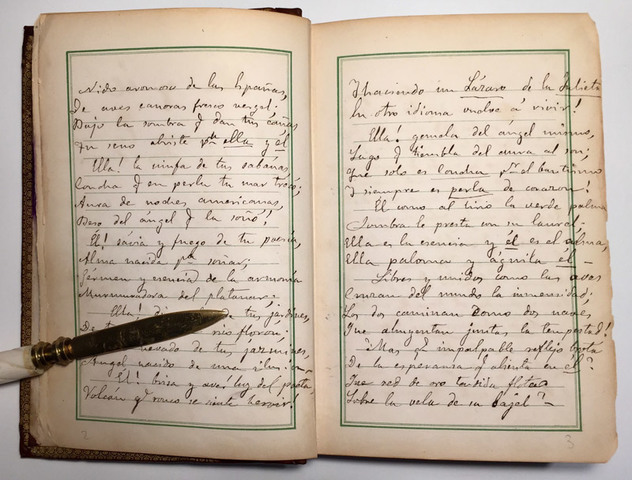 Nido aromoso de las Españas,
De aves canoras fresco vergel:
Bajo la sombra q̃ dan tus cañas
Tu seno abriste pª ella y él
Ella! la ninfa de tus sabanas,
Concha q̃ en perla tu mar trocó;
Aura de noches americanas,
Beso del ángel q̃ la soñó!
Él! sávia y fuego de tu poesía,
Alma nacida pª soñar;
Gérmen y esencia de la armonía
Murmuradora del platanar=
Ella! de tus jardines,
De florón:
nevado de tus jazmines,
Angel nacido de una
El! brisa y ave! luz del poeta,
Volcan q̃ ronco se siente hervir!
2
Y haciendo un Lázaro de la Julieta
En otro idioma vuelve á vivir!
Ella! gemela del ángel mismo,
Luz q̃ tiembla del aura al son;
Que solo es concha pª el bautismo
Y siempre es perla de corazon!
El como al lino la verde palma
Sombra le presta con su laurel:
Ella es la esencia y él es el alma,
Ella paloma y águila él—
Libres y unidos como las aves
Cruzan del mundo la inmensidad;
Los dos caminan como dos naves
Que ahuyentan juntas la tempestad!
Mas q̃ impalpable reflejo brota
De la esperanza q̃ alienta en él?
Que red de oro tendida flota
Sobre la vela de su bajel?—
3